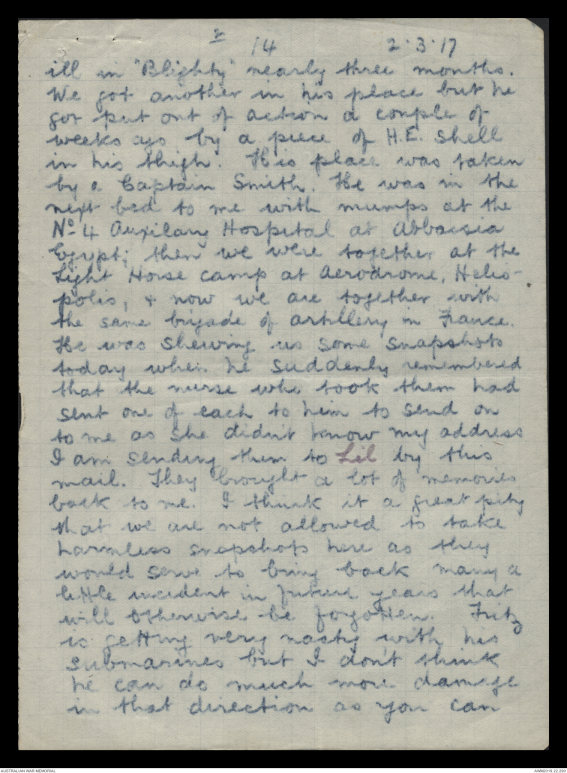 2
14 2.3.17
ill in "Blighty" nearly three months.
We got another in his place but he
got put out of action a couple of
weeks ago by a piece of H.E. Shell
in his thigh. His place was taken
by a Captain Smith. He was in the
next bed to me with mumps at the
No 4 Auxilary Hospital at Abbaisia
Egypt; then we were together at the
Light Horse camp at Aerodrome, Helio-
polis, & now we are together with
the same brigade of artillery in France.
He was shewing us some snapshots
today when he suddenly remembered
that the nurse who took them had
sent one of each to him to send on
to me as she didn't know my address
I am sending them to Lil by this
mail. They brought a lot of memories
back to me. I think it a great pity
that we are not allowed to take
harmless snapshots here as they
would serve to bring back many a
little incident in future years that
will otherwise be forgotten. Fritz
is getting very nasty with his
submarines but I don't think
he can do much more damage
in that direction as you can
AUSTRALIAN WAR MEMORIAL